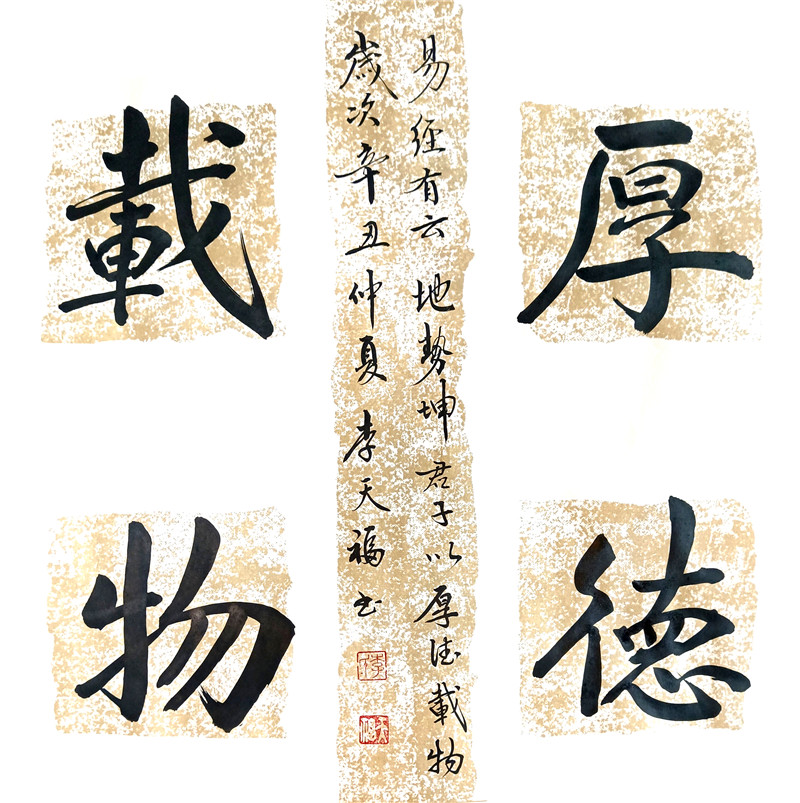 厚德
載物
易經有云地勢坤君子以厚德載物
歲次辛丑仲夏李天福书
李
天福